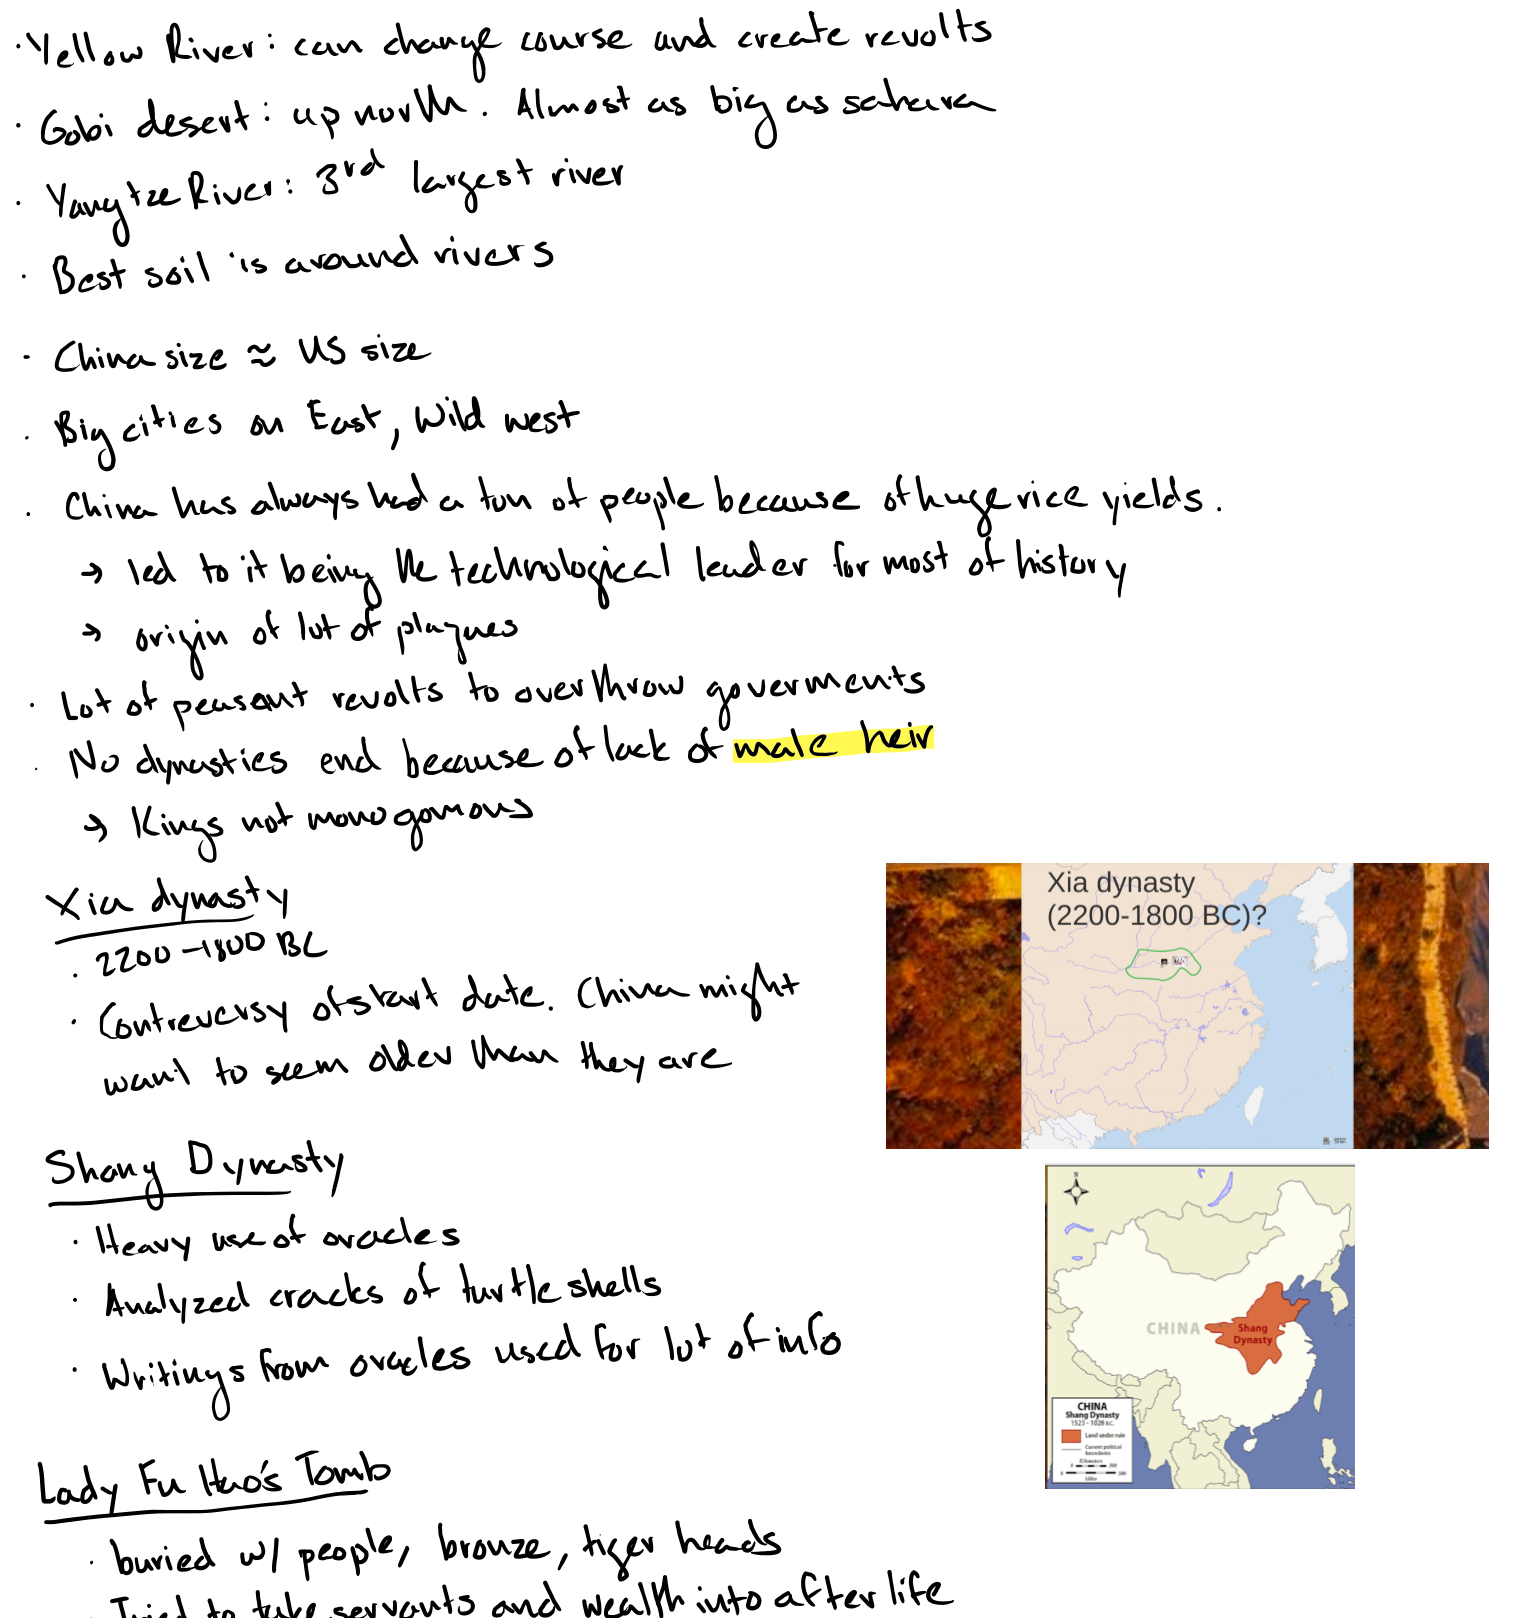 · Yellow River: can change course and create revolts
· Gobi desert: up north. Almost as big as sahara
· Yangtze River: 3rd largest river
· Best soil is around rivers
· China size ≈ US size
· Big cities on East, Wild west
· China has always had a ton of people because of huge rice yields.
→ led to it being the technological leader for most of history
→ origin of lot of plagues
· Lot of peasant revolts to overthrow goverments
· No dynasties end because of lack of male heir
→ Kings not monogomous
Xia dynasty
· 2200-1800 BC
· Contreversy of start date. China might
want to seem older than they are
Xia dynasty
(2200-1800 BC)?
Shang Dynasty
· Heavy use of oracles
· Analyzed cracks of turtle shells
· Writings from oracles used for lot of info
N
CHINA
Shang
Dynasty
CHINA
Shang Dynasty
1523 - 1028 B.C.
Land under rule
Current political
boundaries
Kilometers
0 500
0 500
Miles
Lady Fu Hao's Tomb
· buried w/ people, bronze, tiger heads
· Tried to take servants and wealth into after life